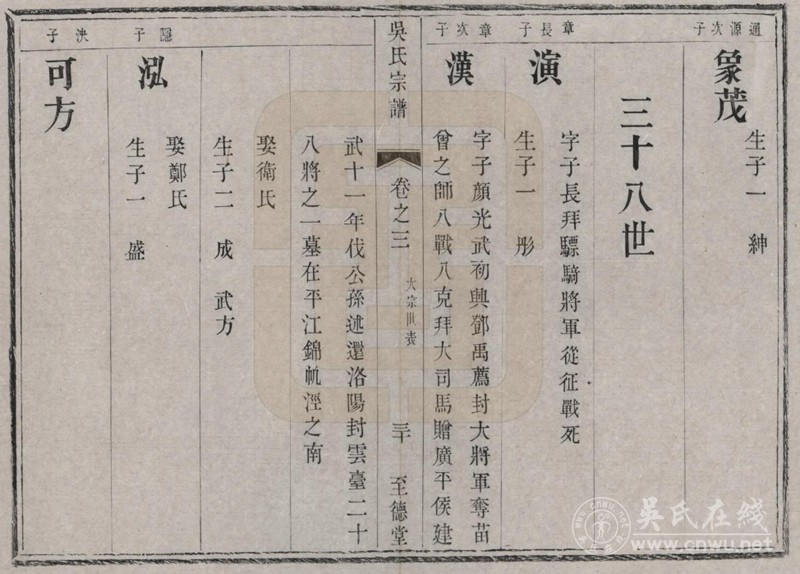 通源次子
象茂
生子一 紳
三十八世
章長子
演
字子長拜驃騎將軍從征戰死
生子一 彤
章次子
漢
字子顏光武初興鄧禹薦封大將軍奪苗
曾之師八戰八克拜大司馬贈廣平侯建
吳氏宗譜
卷之三
大宗世表
三十
至德堂
武十一年伐公孫述還洛陽封雲臺二十
八將之一墓在平江錦帆涇之南
娶衛氏
生子二 成 武方
隱子
泓
娶鄭氏
生子一 盛
泱子
可方
吳氏在线
www.cnwu.net